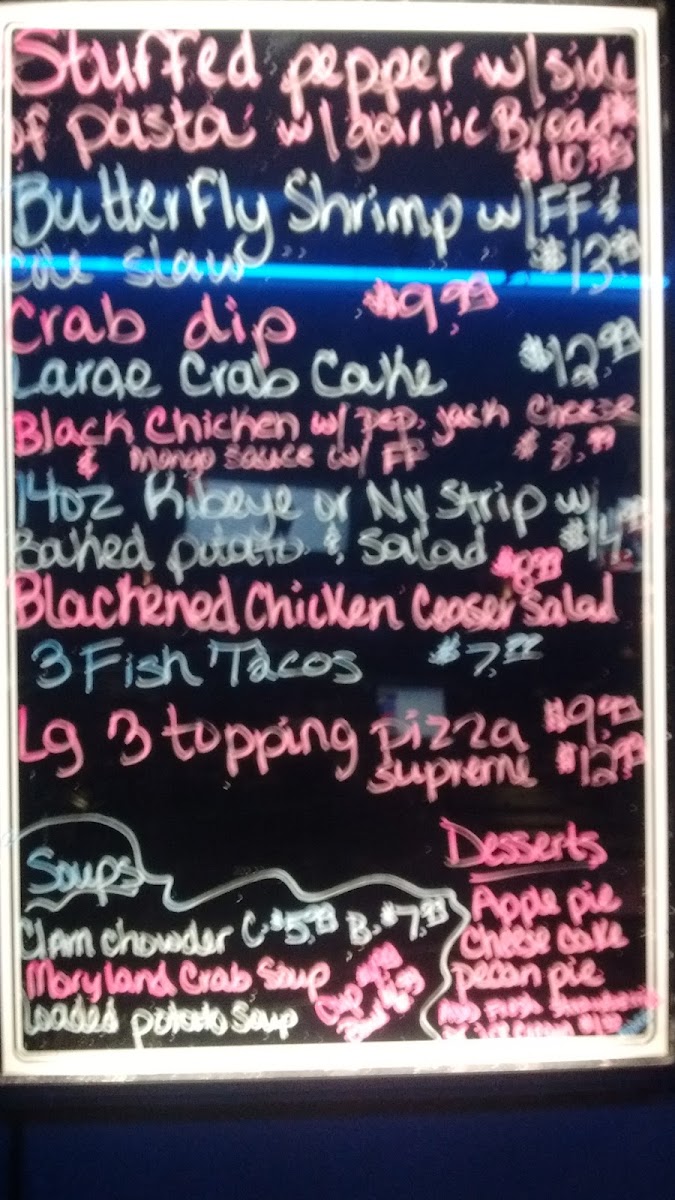 Stuffed pepper w/side
of pasta w/garlic Bread
$10.99
Butterfly Shrimp w/FF &
cole slaw $13.99
Crab dip $9.99
Large Crab Cake $12.99
Black Chicken w/ pep. jack Cheese
& Mango sauce w/ FF $8.99
14oz Ribeye or Ny Strip w/
Baked potato & Salad $14.99
$8.99
Blackened Chicken Ceaser Salad
3 Fish Tacos $7.99
Lg 3 topping pizza $9.99
supreme $12.99
Soups
Clam chowder C. $5.99 B. $7.99
Maryland Crab Soup
loaded potato Soup
Cup
Bowl
Desserts
Apple pie
Cheese cake
pecan pie
Add Fresh Strawberry